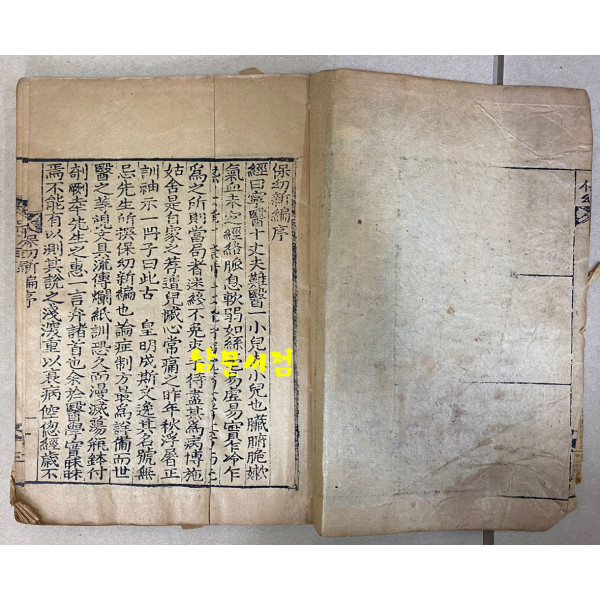 保幼新編序
經曰寧醫十丈夫難醫一小兒 小兒也臟腑脆嫩
氣血未定經絡脈息軟弱如絲 易虛易實乍冷乍
爲之所則當局者迷終不免束手待盡其爲病博施
姑舍是自家之荐遭兒慽心常痛之昨年秋浮屠正
訓袖示一冊子曰此古 皇明成斯文逸其名號無
忌先生所撰保幼新編也論症制方最爲詳備而世
醫之英視文具流傳爛紙訓恐久而漫滅蕩甁鉢付
剞劂幸先生之惠一言弁諸首也余於醫學實昧昧
焉不能有以測其說之淺深重以衰病倥偬經歲不
保幼新編序
남문서점
保幼